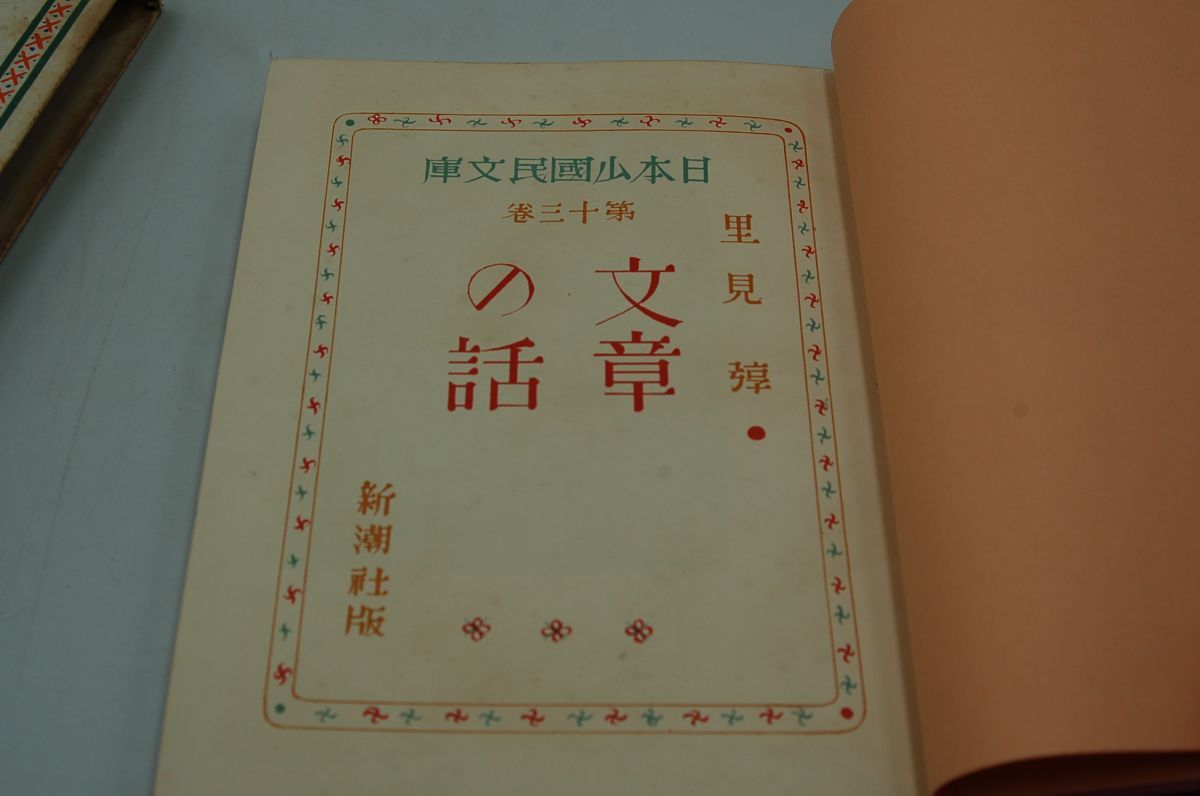 日本少國民文庫
第十三卷
里見 弴
文章
の話
新潮社版